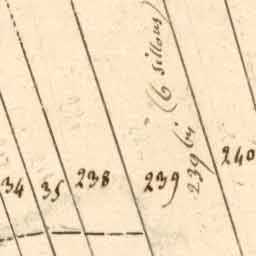 34
35
238
239
239 bis (6 sillons)
240